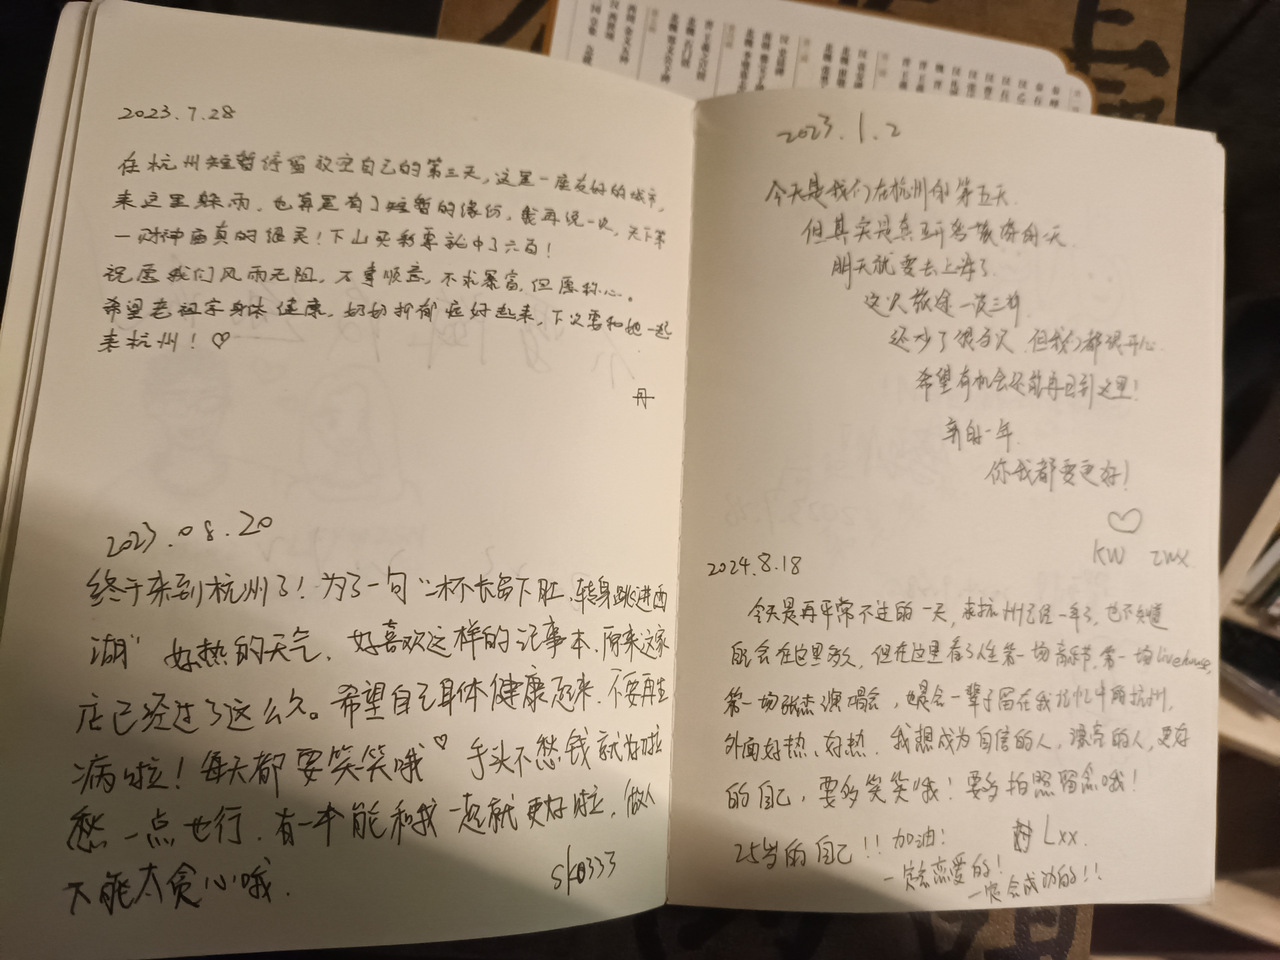 2023.7.28
在杭州短暂停留放空自己的第三天,这是一座友好的城市,
来这里躲雨,也算是有了短暂的缘份,我再说一次,天下第
一财神庙真的很灵!下山买彩票就中了六百!
祝愿我们风雨无阻,万事顺意,不求暴富,但愿称心。
希望老祖宗身体健康,奶奶抑郁症好起来,下次要和她一起
来杭州!♡
丹
2023.08.20
终于来到杭州了!为了一句“一杯长岛下肚,转身跳进西
湖”好热的天气,好喜欢这样的记事本,原来这家
店已经过了这么久。希望自己身体健康起来,不要再生
病啦!每天都要笑笑哦♡ 手头不愁钱就好啦
愁一点也行,有一本能和我一起就更好啦,做人
不能太贪心哦.
sko333
2023.1.2
今天是我们在杭州的第五天
但其实是真正开启旅游的一天
明天就要去上海了
这次旅途一波三折
还吵了很多次 但我们都很开心
希望有机会还能再回到这里!
新的一年
你我都要更好!
♡
KW ZWX
2024.8.18
今天是再平常不过的一天,来杭州已经一年了,也不知道
能会在这里多久,但在这里看了人生第一场音乐节,第一场livehouse,
第一场张杰演唱会,也是会一辈子留在我记忆中的杭州,
外面好热、好热,我想成为自信的人,漂亮的人,更好
的自己,要多笑笑哦!要多拍照留念哦!
25岁的自己!!加油! Lxx.
一定会恋爱的!
一定会成功的!!